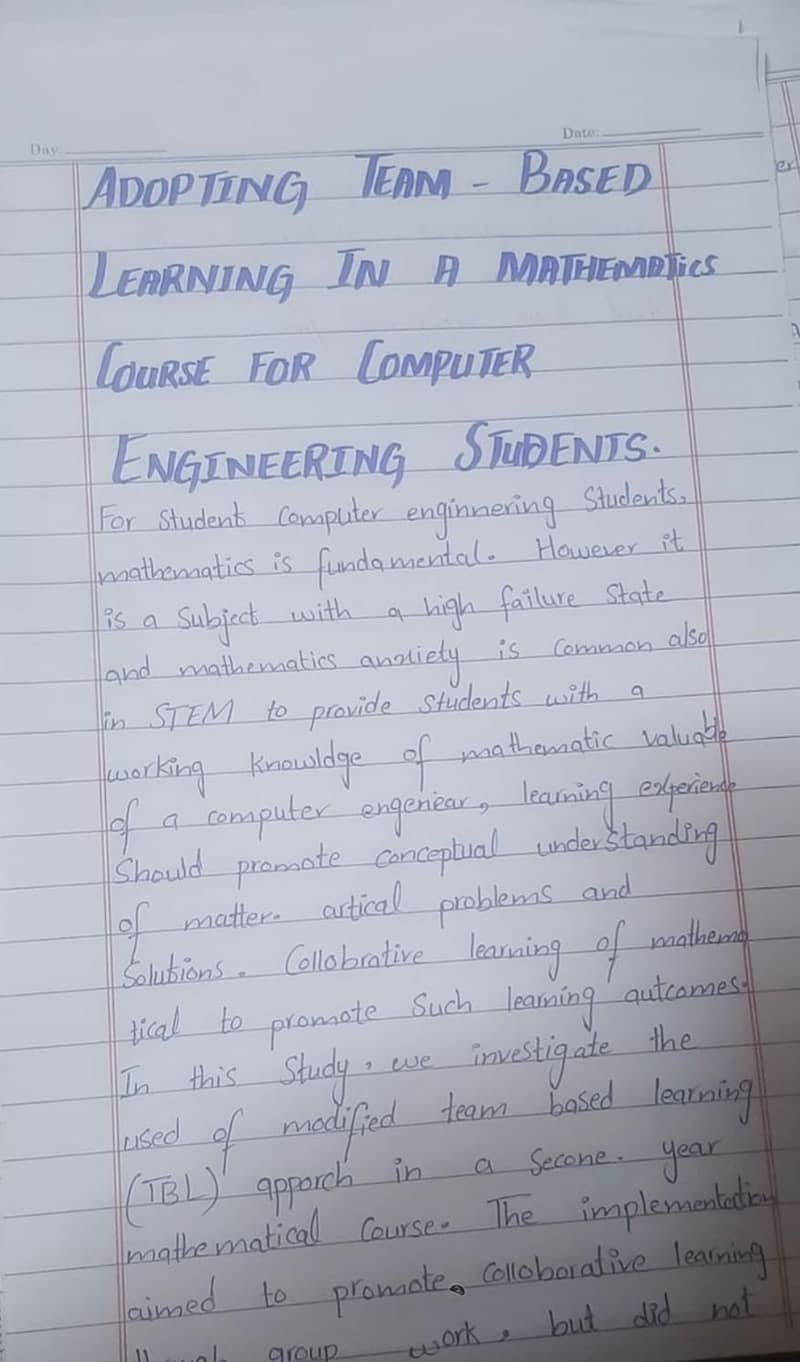 Day:
Date:
ADOPTING TEAM - BASED
LEARNING IN A MATHEMATICS
COURSE FOR COMPUTER
ENGINEERING STUDENTS.
For Student Computer enginnering Students,
mathematics is fundamental. However it
is a Subject with a high failure State
and mathematics anxiety is Common also
in STEM to provide Students with a
working knowldge of mathematic valuable
of a computer engeniear, learning experiende
Should promote conceptual understanding
of matter. artical problems and
Solutions. Collobrative learning of mathema
tical to promote Such learning autcomes.
In this Study, we investigate the
used of modified team based learning
(TBL) apporch in a Secone. year
mathematical Course. The implementation
aimed to promote. Colloborative learning
group work, but did not